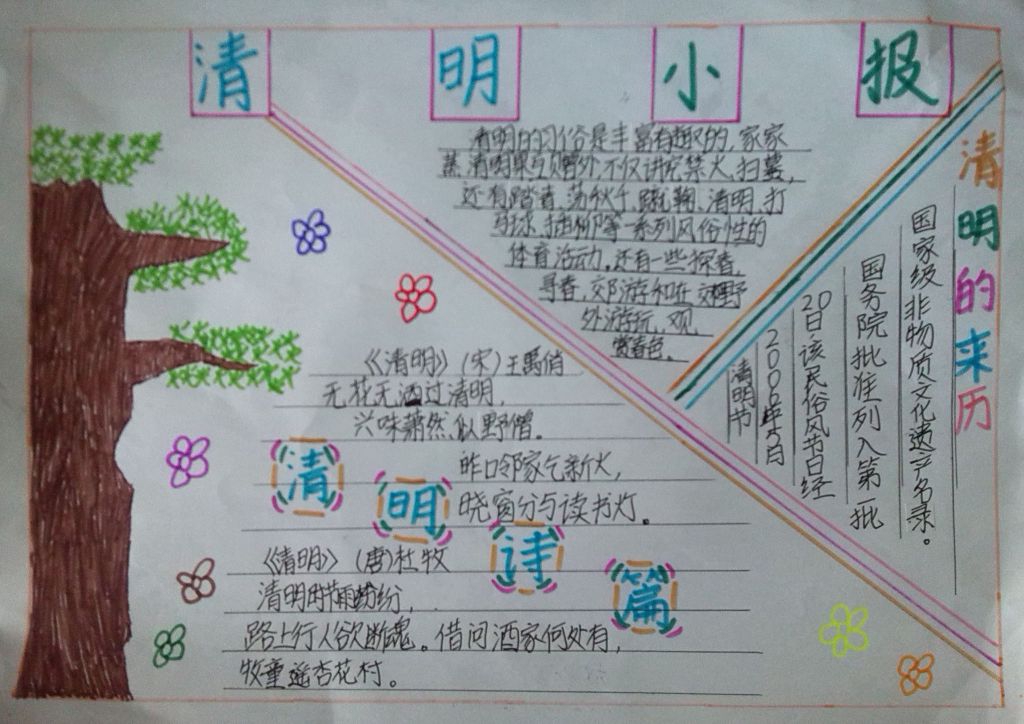 清明小报
清明的习俗是丰富有趣的,家家
蒸清明果互赠外,不仅讲究禁火、扫墓,
还有踏青、荡秋千、蹴鞠、清明、打
马球、插柳等一系列风俗性的
体育活动。还有一些探春,
寻春,郊游和在郊野
外游玩,观
赏春色。
清明的来历
清明节
2006年5月
20日该民俗风节日经
国务院批准列入第一批
国家级非物质文化遗产名录。
《清明》(宋)王禹偁
无花无酒过清明,
兴味萧然似野僧。
昨日邻家乞新火,
晓窗分与读书灯。
清明诗篇
《清明》(唐)杜牧
清明时节雨纷纷,
路上行人欲断魂。借问酒家何处有,
牧童遥杏花村。